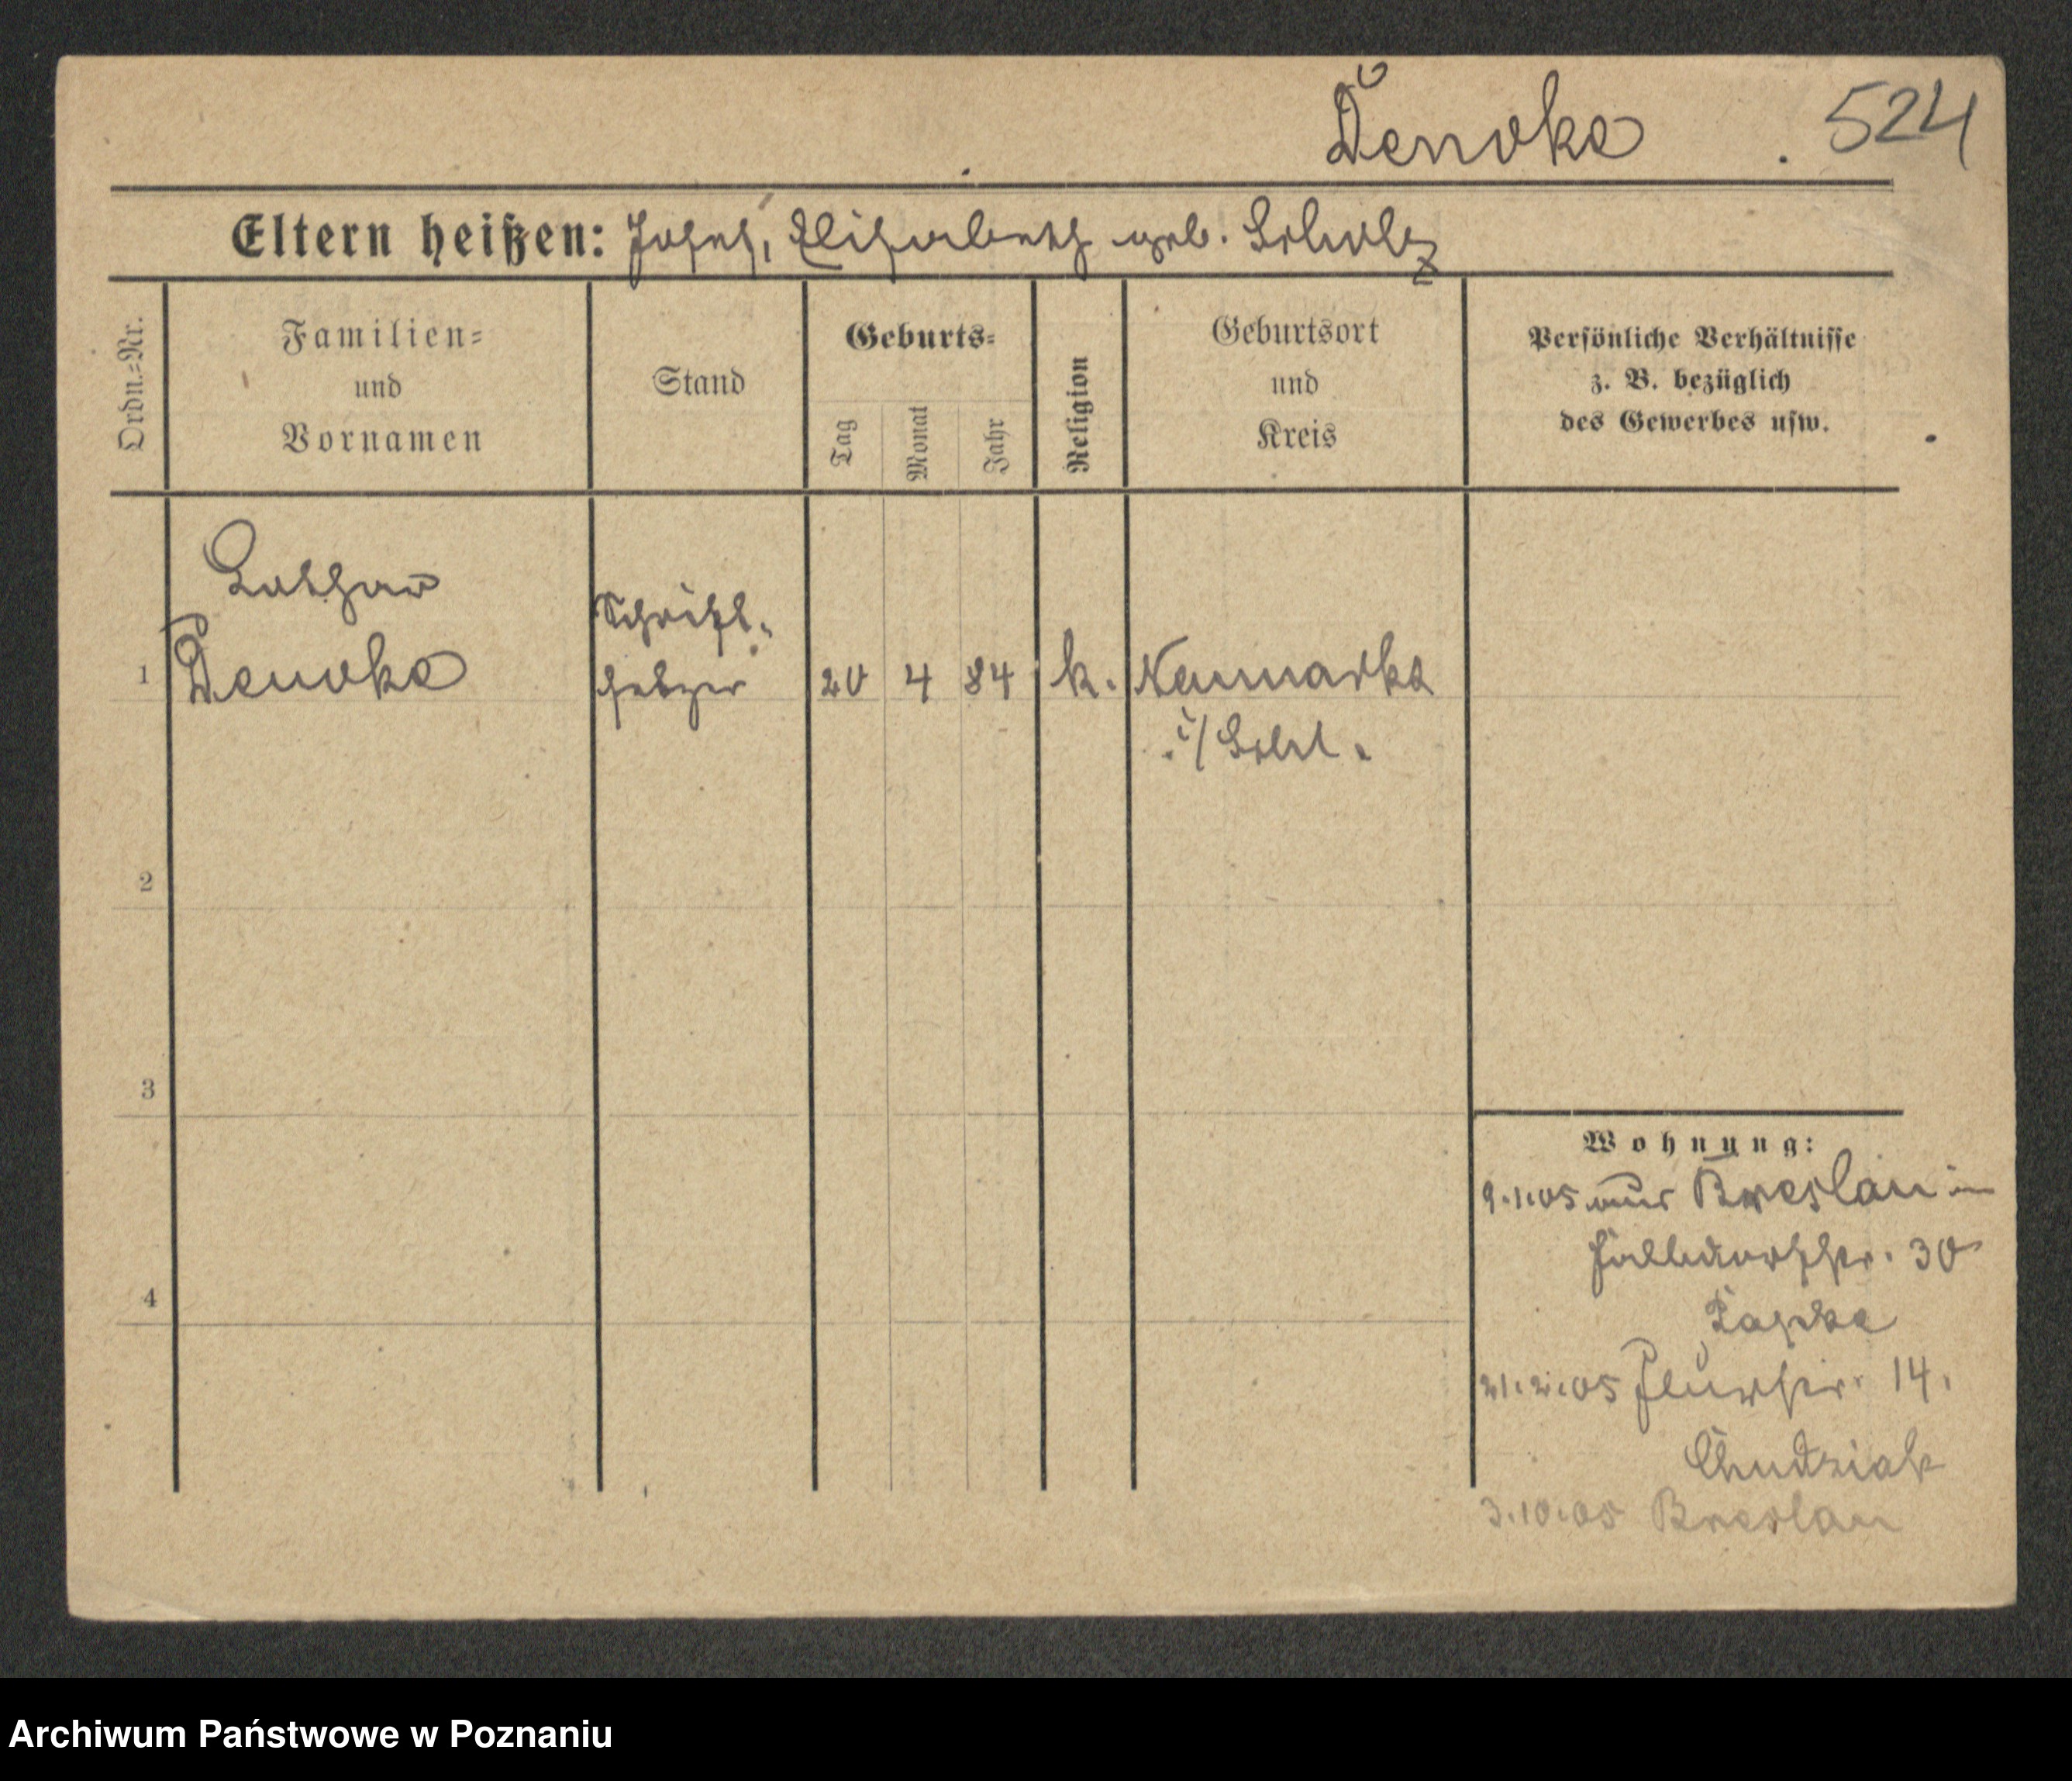 Denoke
524
Eltern heißen: Josef, Elisabeth geb. Scholz
Ordn.=Nr.
Familien=
und
Vornamen
Stand
Geburts=
Tag
Monat
Jahr
Religion
Geburtsort
und
Kreis
Persönliche Verhältnisse
z. B. bezüglich
des Gewerbes usw.
Lothar
Schrift-
1 Denoke setzer 20 4 84 k. Neumarkt
i/Schl.
2
3
4
Wohnung:
9.1.05 aus Breslau in
30
21.2.05 14.
Chudziak
3.10.05 Breslau
Archiwum Państwowe w Poznaniu